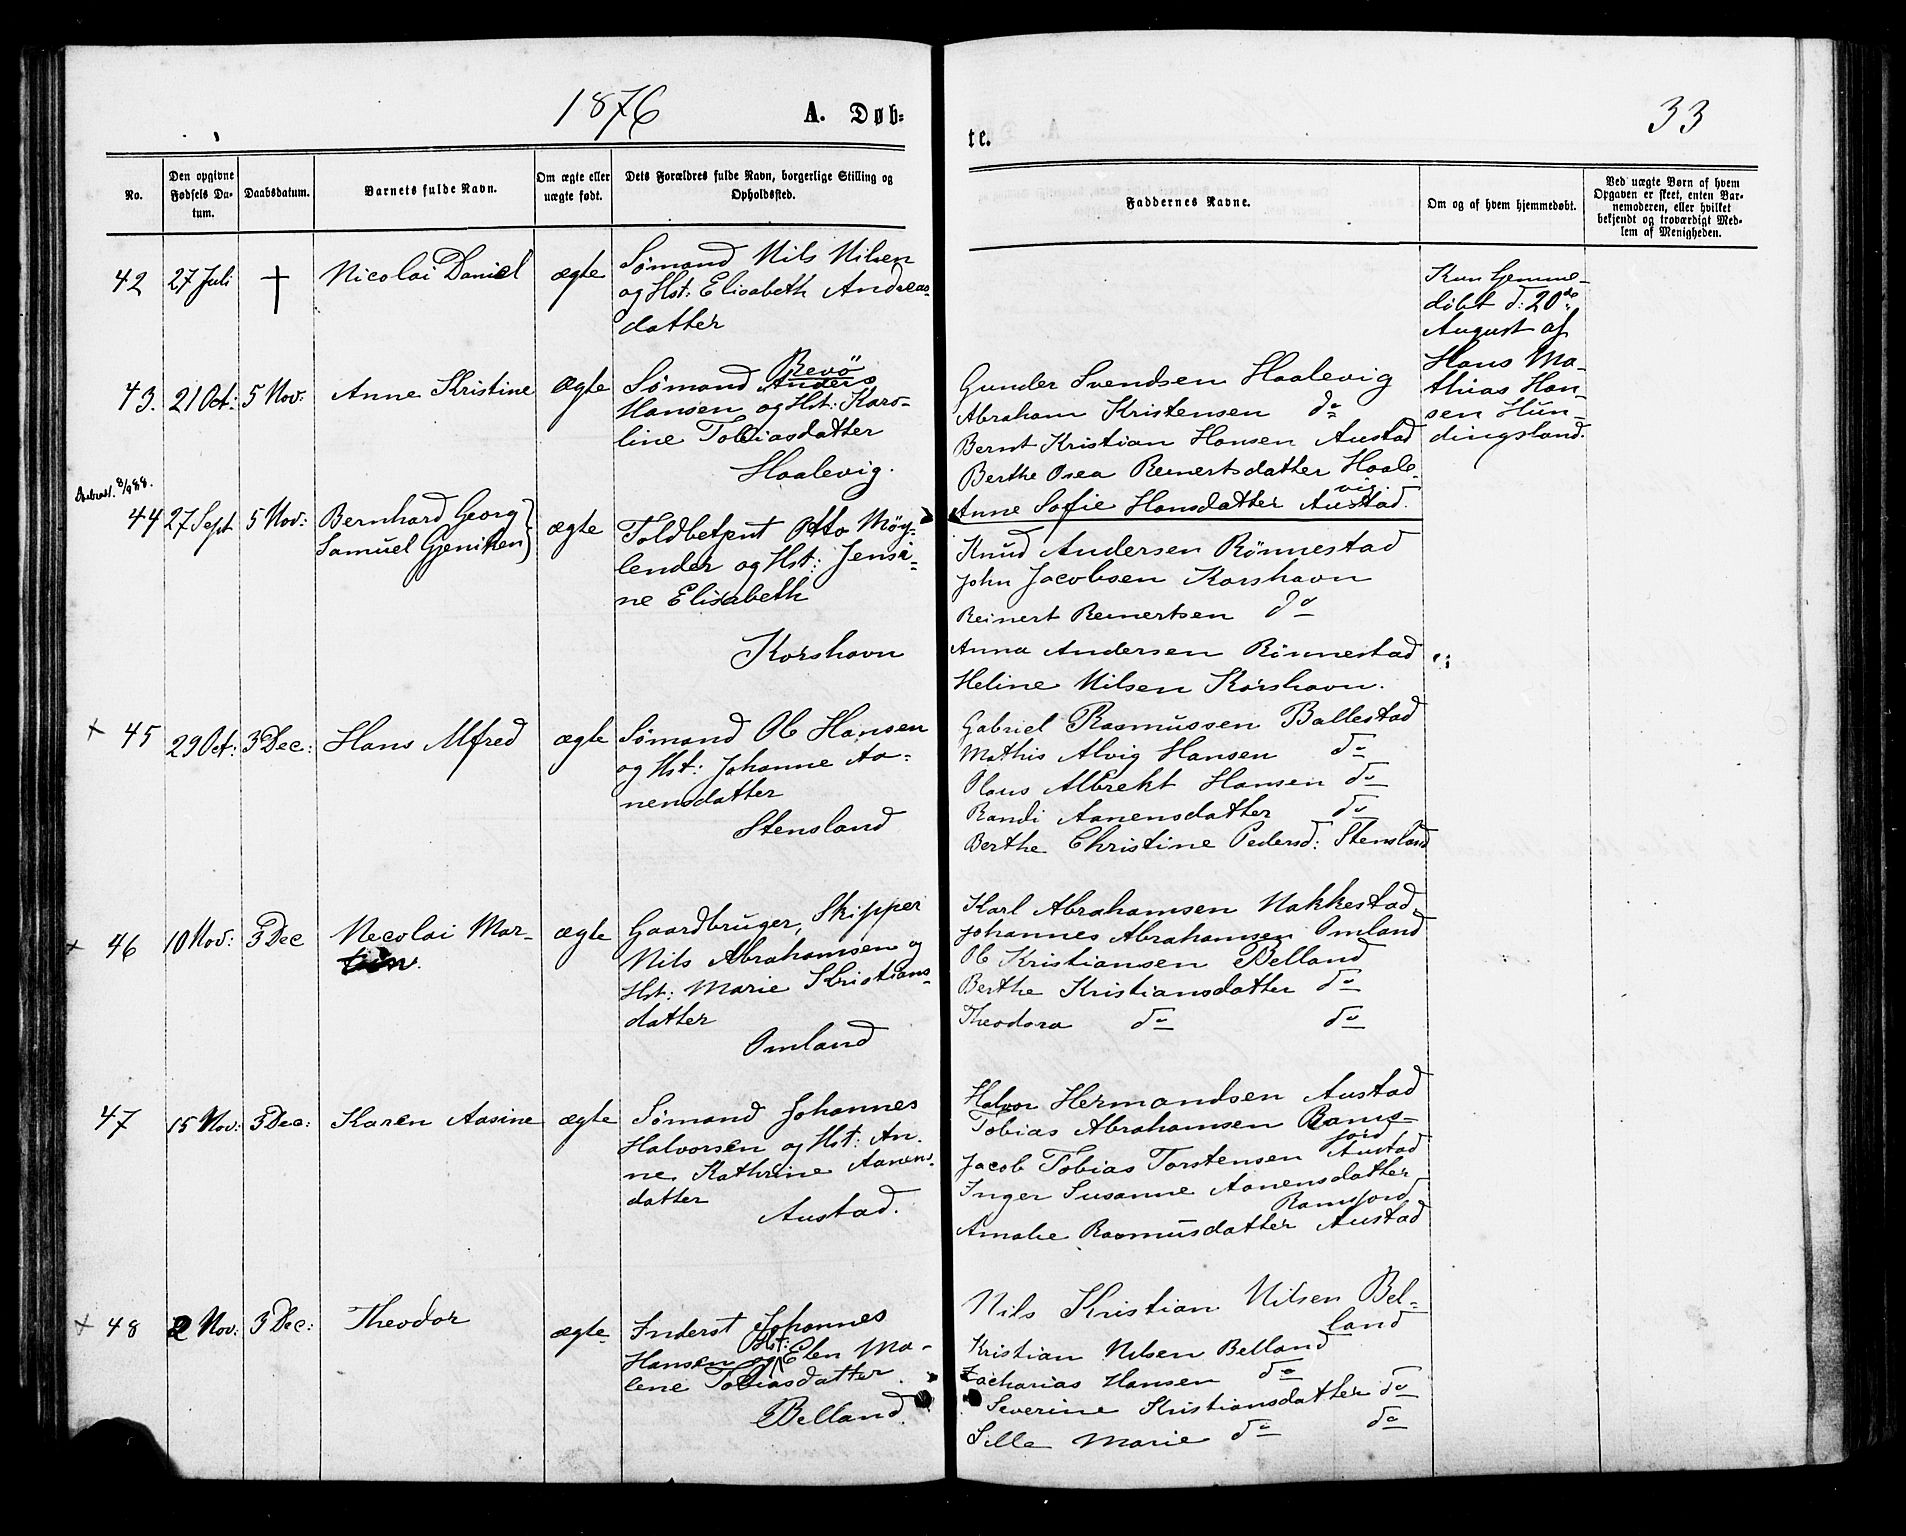 1876
A. Døb=
te.
33
No.
Den opgivne Fødsels Da-
tum.
Daabsdatum.
Barnets fulde Navn.
Om ægte eller
uægte født.
Dets Forældres fulde Navn, borgerlige Stilling og
Opholdssted.
Faddernes Navne.
Om og af hvem hjemmedøbt.
Ved uægte Børn af hvem
Opgaven er skeet, enten Bar-
nemoderen, eller hvilket
bekjendt og troværdigt Med-
lem af Menigheden.
42 27 Juli † Nicolai Daniel ægte
Sømand Nils Nilsen
og Hst: Elisabeth Andreas-
datter
Kun hjemme-
døbt d: 20de
August af
Hans Ma-
thias Han-
sen Hun-
dingsland.
43. 21 Oct: 5 Nov: Anne Kristine ægte
Sømand Anders Revø
Hansen og Hst: Karo-
line Tobiasdatter
Haalevig.
Gunder Svendsen Haalevig
Abraham Kristensen do
Bernt Kristian Hansen Austad
Berthe Osea Reinertsdatter Haale-
vig
Anne Sofie Hansdatter Austad.
8/9 88.
44 27 Sept 5 Nov: Bernhard Georg
Samuel Gjeniken
ægte
Toldbetjent Otto Møg-
lender og Hst: Jensi-
ne Elisabeth
Korshavn
Knud Andersen Rönnestad
John Jacobsen Korshavn
Reinert Reinertsen do
Anna Andersen Rönnestad
Heline Nilsen Korshavn.
+ 45 29 Oct: 3 Dec: Hans Alfred ægte
Sømand Ol Hansen
og Hst: Johanne Aa-
nensdatter
Stensland
Gabriel Rasmussen Ballestad
Mathis Alvig Hansen do
Klaus Albrekt Hansen do
Randi Aanensdatter do
Berthe Christine Pedersd: Stensland
+ 46 10 Nov: 3 Dec Necolai Mar-
tin.
ægte
Gaardbruger, Skipper
Nils Abrahamsen og
Hst: Marie Kristians-
datter
Omland
Karl Abrahamsen Nakkestad
Johannes Abrahamsen Omland
Ol Kristiansen Belland
Berthe Kristiansdatter do
Theodora do do
47 15 Nov: 3 Dec: Karen Aasine ægte
Sømand Johannes
Halvorsen og Hst: An-
ne Kathrine Aanens-
datter
Austad.
Halvor Hermandsen Austad
Tobias Abrahamsen Rams-
fjord
Jacob Tobias Torstensen Austad
Inger Susanne Aanensdatter
Ramsfjord
Amalie Rasmusdatter Austad
+ 48 2 Nov: 3 Dec: Theodor ægte
Inderst Johannes
Hansen og Hst: Elen Ma-
lene Tobiasdatter.
Belland.
Nils Kristian Nilsen Bel-
land
Kristian Nilsen Belland
Zacharias Hansen do
Severine Kristiansdatter do
Sille Marie do do